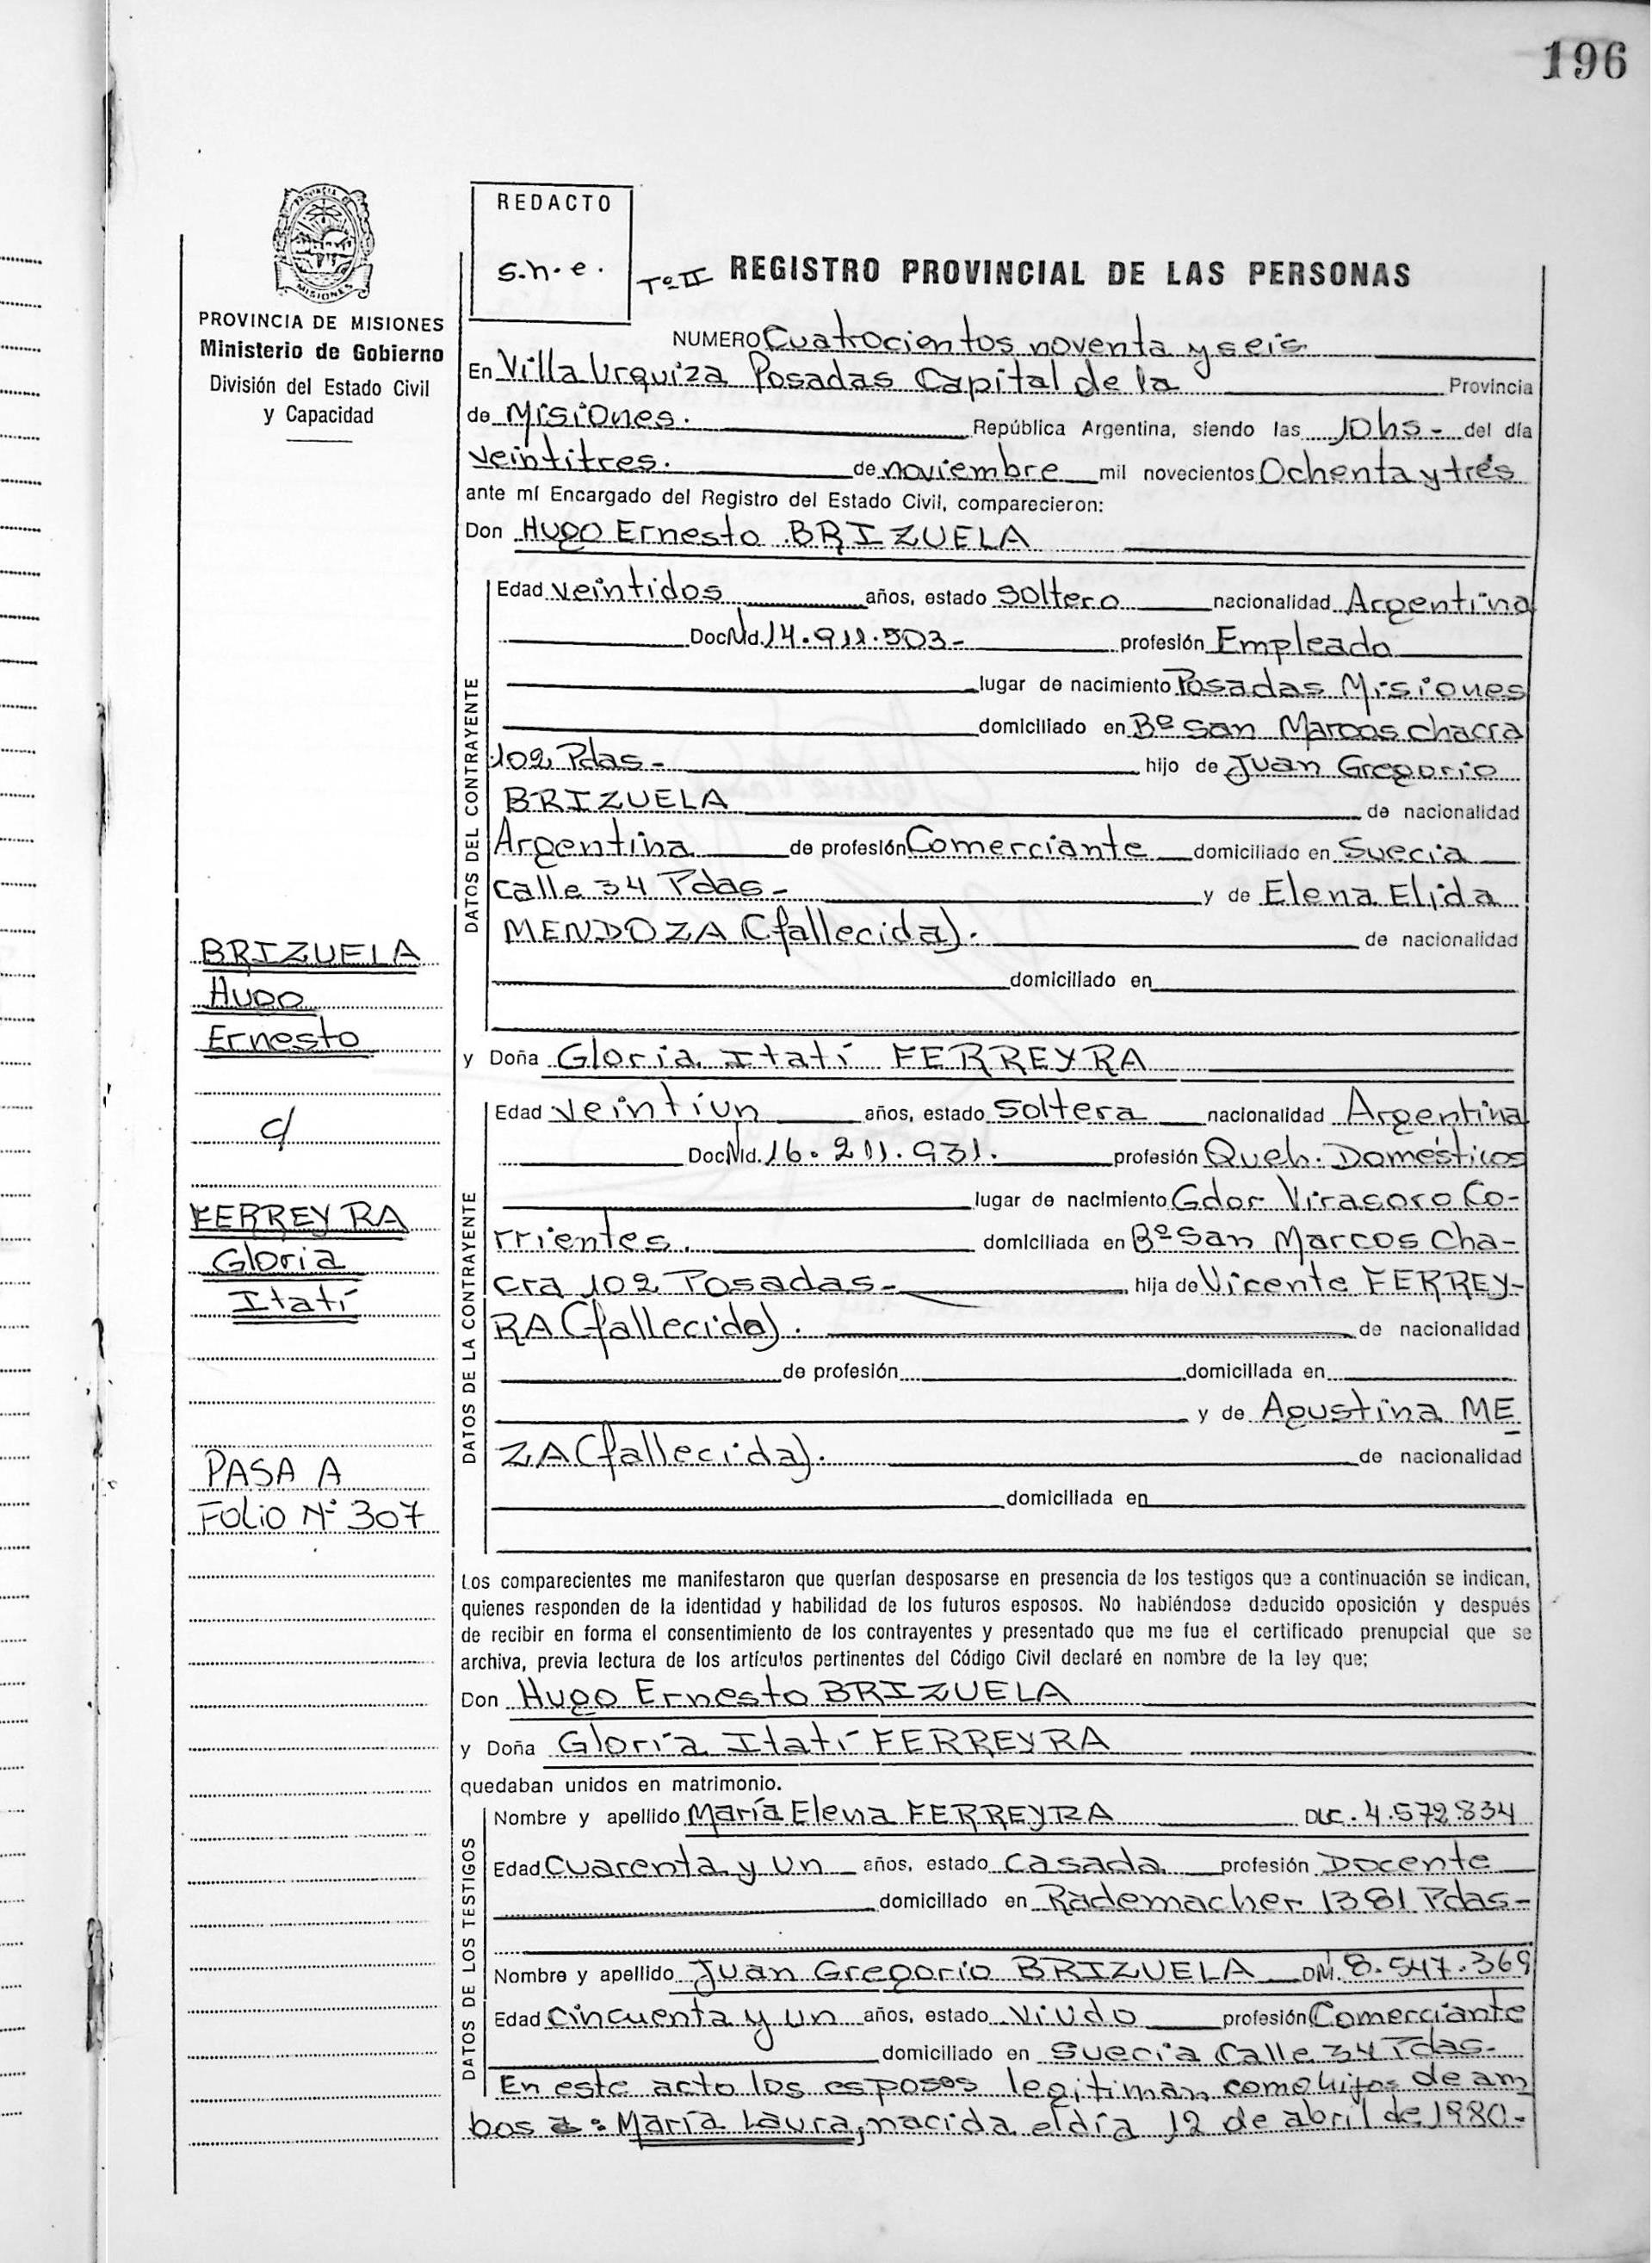 196
REDACTO
s.h.e.
Tº II REGISTRO PROVINCIAL DE LAS PERSONAS
PROVINCIA DE MISIONES
Ministerio de Gobierno
División del Estado Civil
y Capacidad
MISIONES
NUMERO Cuatrocientos noventa y seis
En Villa Urquiza Posadas Capital de la Provincia
de Misiones. República Argentina, siendo las 10hs - del día
veintitres. de noviembre mil novecientos Ochenta y trés
ante mí Encargado del Registro del Estado Civil, comparecieron:
Don Hugo Ernesto BRIZUELA
DATOS DEL CONTRAYENTE
Edad veintidos años, estado soltero nacionalidad Argentina
Doc Nd. 14.911.503- profesión Empleado
lugar de nacimiento Posadas Misiones
domiciliado en Bº San Marcos chacra
102 Pdas- hijo de Juan Gregorio
BRIZUELA de nacionalidad
Argentina de profesión Comerciante domiciliado en Suecia
calle 34 Pdas- y de Elena Elida
MENDOZA (fallecida). de nacionalidad
domiciliado en
y Doña Gloria Itatí FERREYRA
DATOS DE LA CONTRAYENTE
Edad veintiun años, estado soltera nacionalidad Argentina
Doc Nd. 16.211.931. profesión Queh. Domésticos
lugar de nacimiento Gdor Virasoro Co-
rrientes. domiciliada en Bº San Marcos Cha-
cra 102 Posadas- hija de Vicente FERREY-
RA (fallecido). de nacionalidad
de profesión domiciliada en
y de Agustina ME
ZA (fallecida). de nacionalidad
domiciliada en
BRIZUELA
Hugo
Ernesto
c/
FERREYRA
Gloria
Itatí
PASA A
Folio Nº 307
Los comparecientes me manifestaron que querían desposarse en presencia de los testigos que a continuación se indican,
quienes responden de la identidad y habilidad de los futuros esposos. No habiéndose deducido oposición y después
de recibir en forma el consentimiento de los contrayentes y presentado que me fue el certificado prenupcial que se
archiva, previa lectura de los artículos pertinentes del Código Civil declaré en nombre de la ley que;
Don Hugo Ernesto BRIZUELA
y Doña Gloria Itatí FERREYRA
quedaban unidos en matrimonio.
DATOS DE LOS TESTIGOS
Nombre y apellido María Elena FERREYRA DLC. 4.572.834
Edad Cuarenta y un años, estado casada profesión Docente
domiciliado en Rademacher 1381 Pdas-
Nombre y apellido Juan Gregorio BRIZUELA DM. 8.547.369
Edad Cincuenta y un años, estado viudo profesión Comerciante
domiciliado en Suecia Calle 34 Pdas-
En este acto los esposos legitiman como hijos de am
bos a: María Laura, nacida el día 12 de abril de 1980-